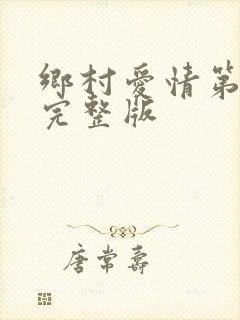 鄉村愛情第
完整版
唐常壽